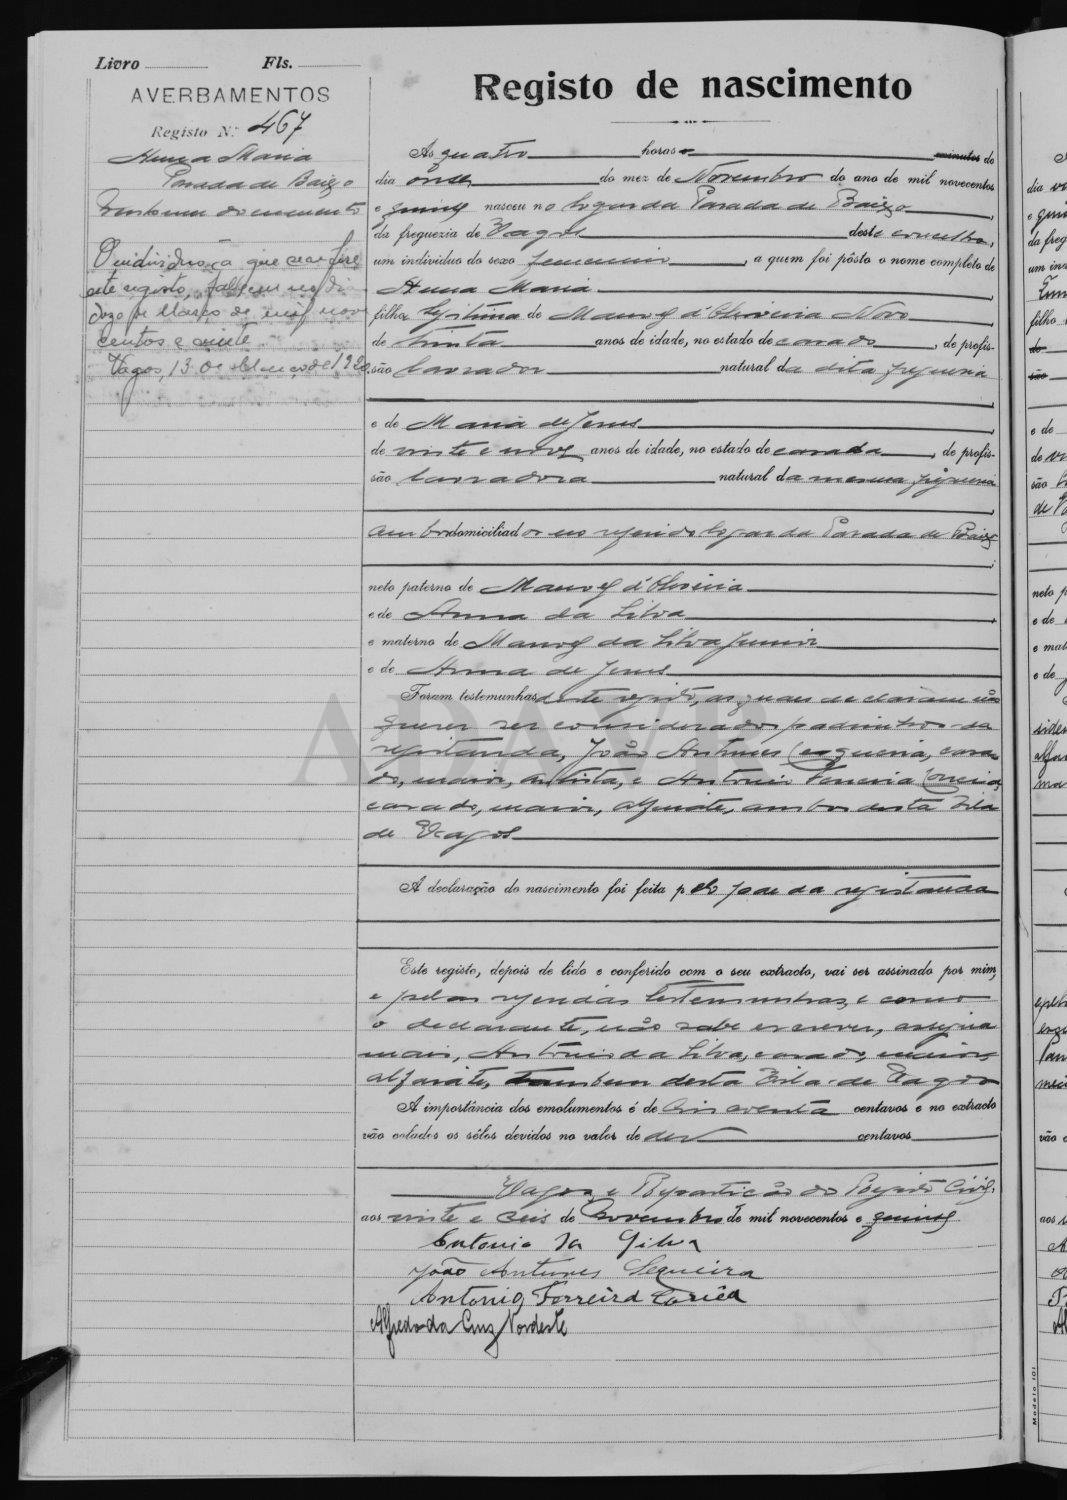 Livro Fls.
AVERBAMENTOS
Registo N.º 467
Anna Maria
Parada de Baixo
Nenhum documento
O individuo a que se refere
este registo, faleceu no dia
doze de Março de mil nove
centos e vinte.
Vagos, 13 de Março de 1920.
Registo de nascimento
Ás quatro horas e minutos do
dia onze do mez de Novembro do ano de mil novecentos
e quinze nasceu no logar da Parada de Baixo,
da freguezia de Vagos deste concelho,
um individuo do sexo femenino, a quem foi pôsto o nome completo de
Anna Maria,
filha legitima de Manoel d'Oliveira Novo,
de trinta anos de idade, no estado de casado, de profis-
são lavrador natural da dita freguesia
e de Maria de Jesus,
de vinte e nove anos de idade, no estado de casada, de profis-
são lavradora natural da mesma freguesia
ambos domiciliados no referido logar da Parada de Baixo
neto paterno de Manoel d'Oliveira
e de Anna da Silva,
e materno de Manoel da Silva Junior
e de Anna de Jesus
Foram testemunhas deste registo, as quaes declaram não
querer ser considerados padrinhos da
registanda, João Antunes Sequeira, casa-
do, maior, artista, e Antonio Ferreira
casado, maior, alfaiate, ambos desta Vila
de Vagos
A declaração do nascimento foi feita pelo pae da registanda
Este registo, depois de lido e conferido com o seu extracto, vai ser assinado por mim,
e pelas referidas testemunhas, e como
o declarante, não sabe escrever, assigna
mais, Antonio da Silva, casado, maior,
alfaiate, tambem desta Vila de Vagos
A importância dos emolumentos é de cincoenta centavos e no extracto
vão colados os sêlos devidos no valor de dez centavos
Vagos, e Repartição do Registo Civil,
aos vinte e seis de Novembro de mil novecentos e quinze
Antonio da Silva
João Antunes Sequeira
Antonio Ferreira
Alfredo da Cruz Nordeste
Modelo 101